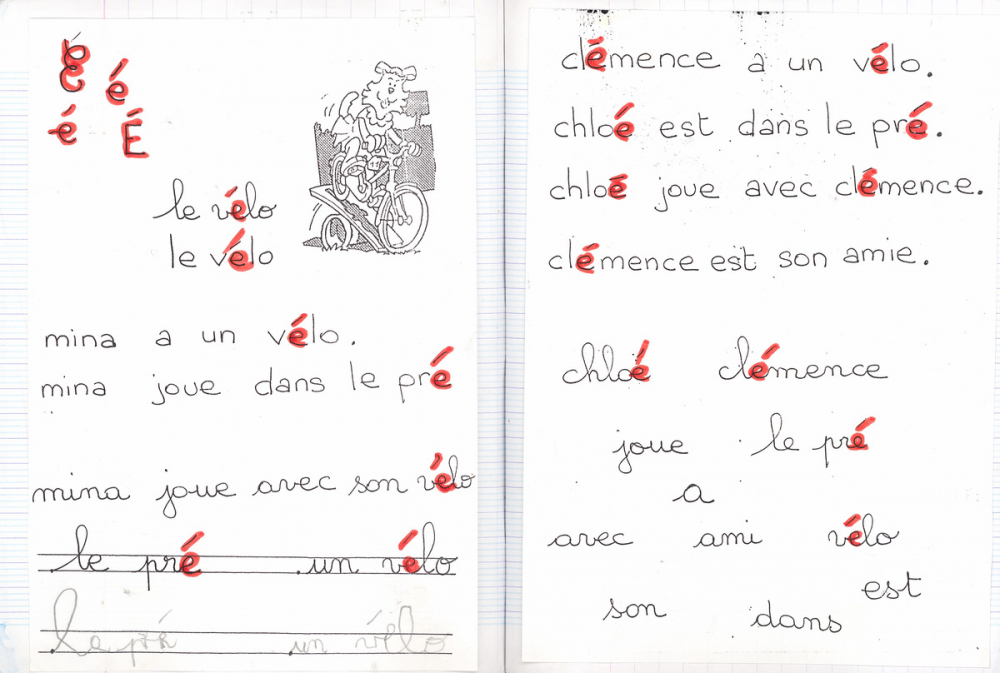 É é
é É
le vélo
le vélo
mina a un vélo.
mina joue dans le pré
mina joue avec son vélo
le pré un vélo
le pré un vélo
clémence a un vélo.
chloé est dans le pré.
chloé joue avec clémence.
clémence est son amie.
chloé clémence
joue le pré
a
avec ami vélo
est
son dans